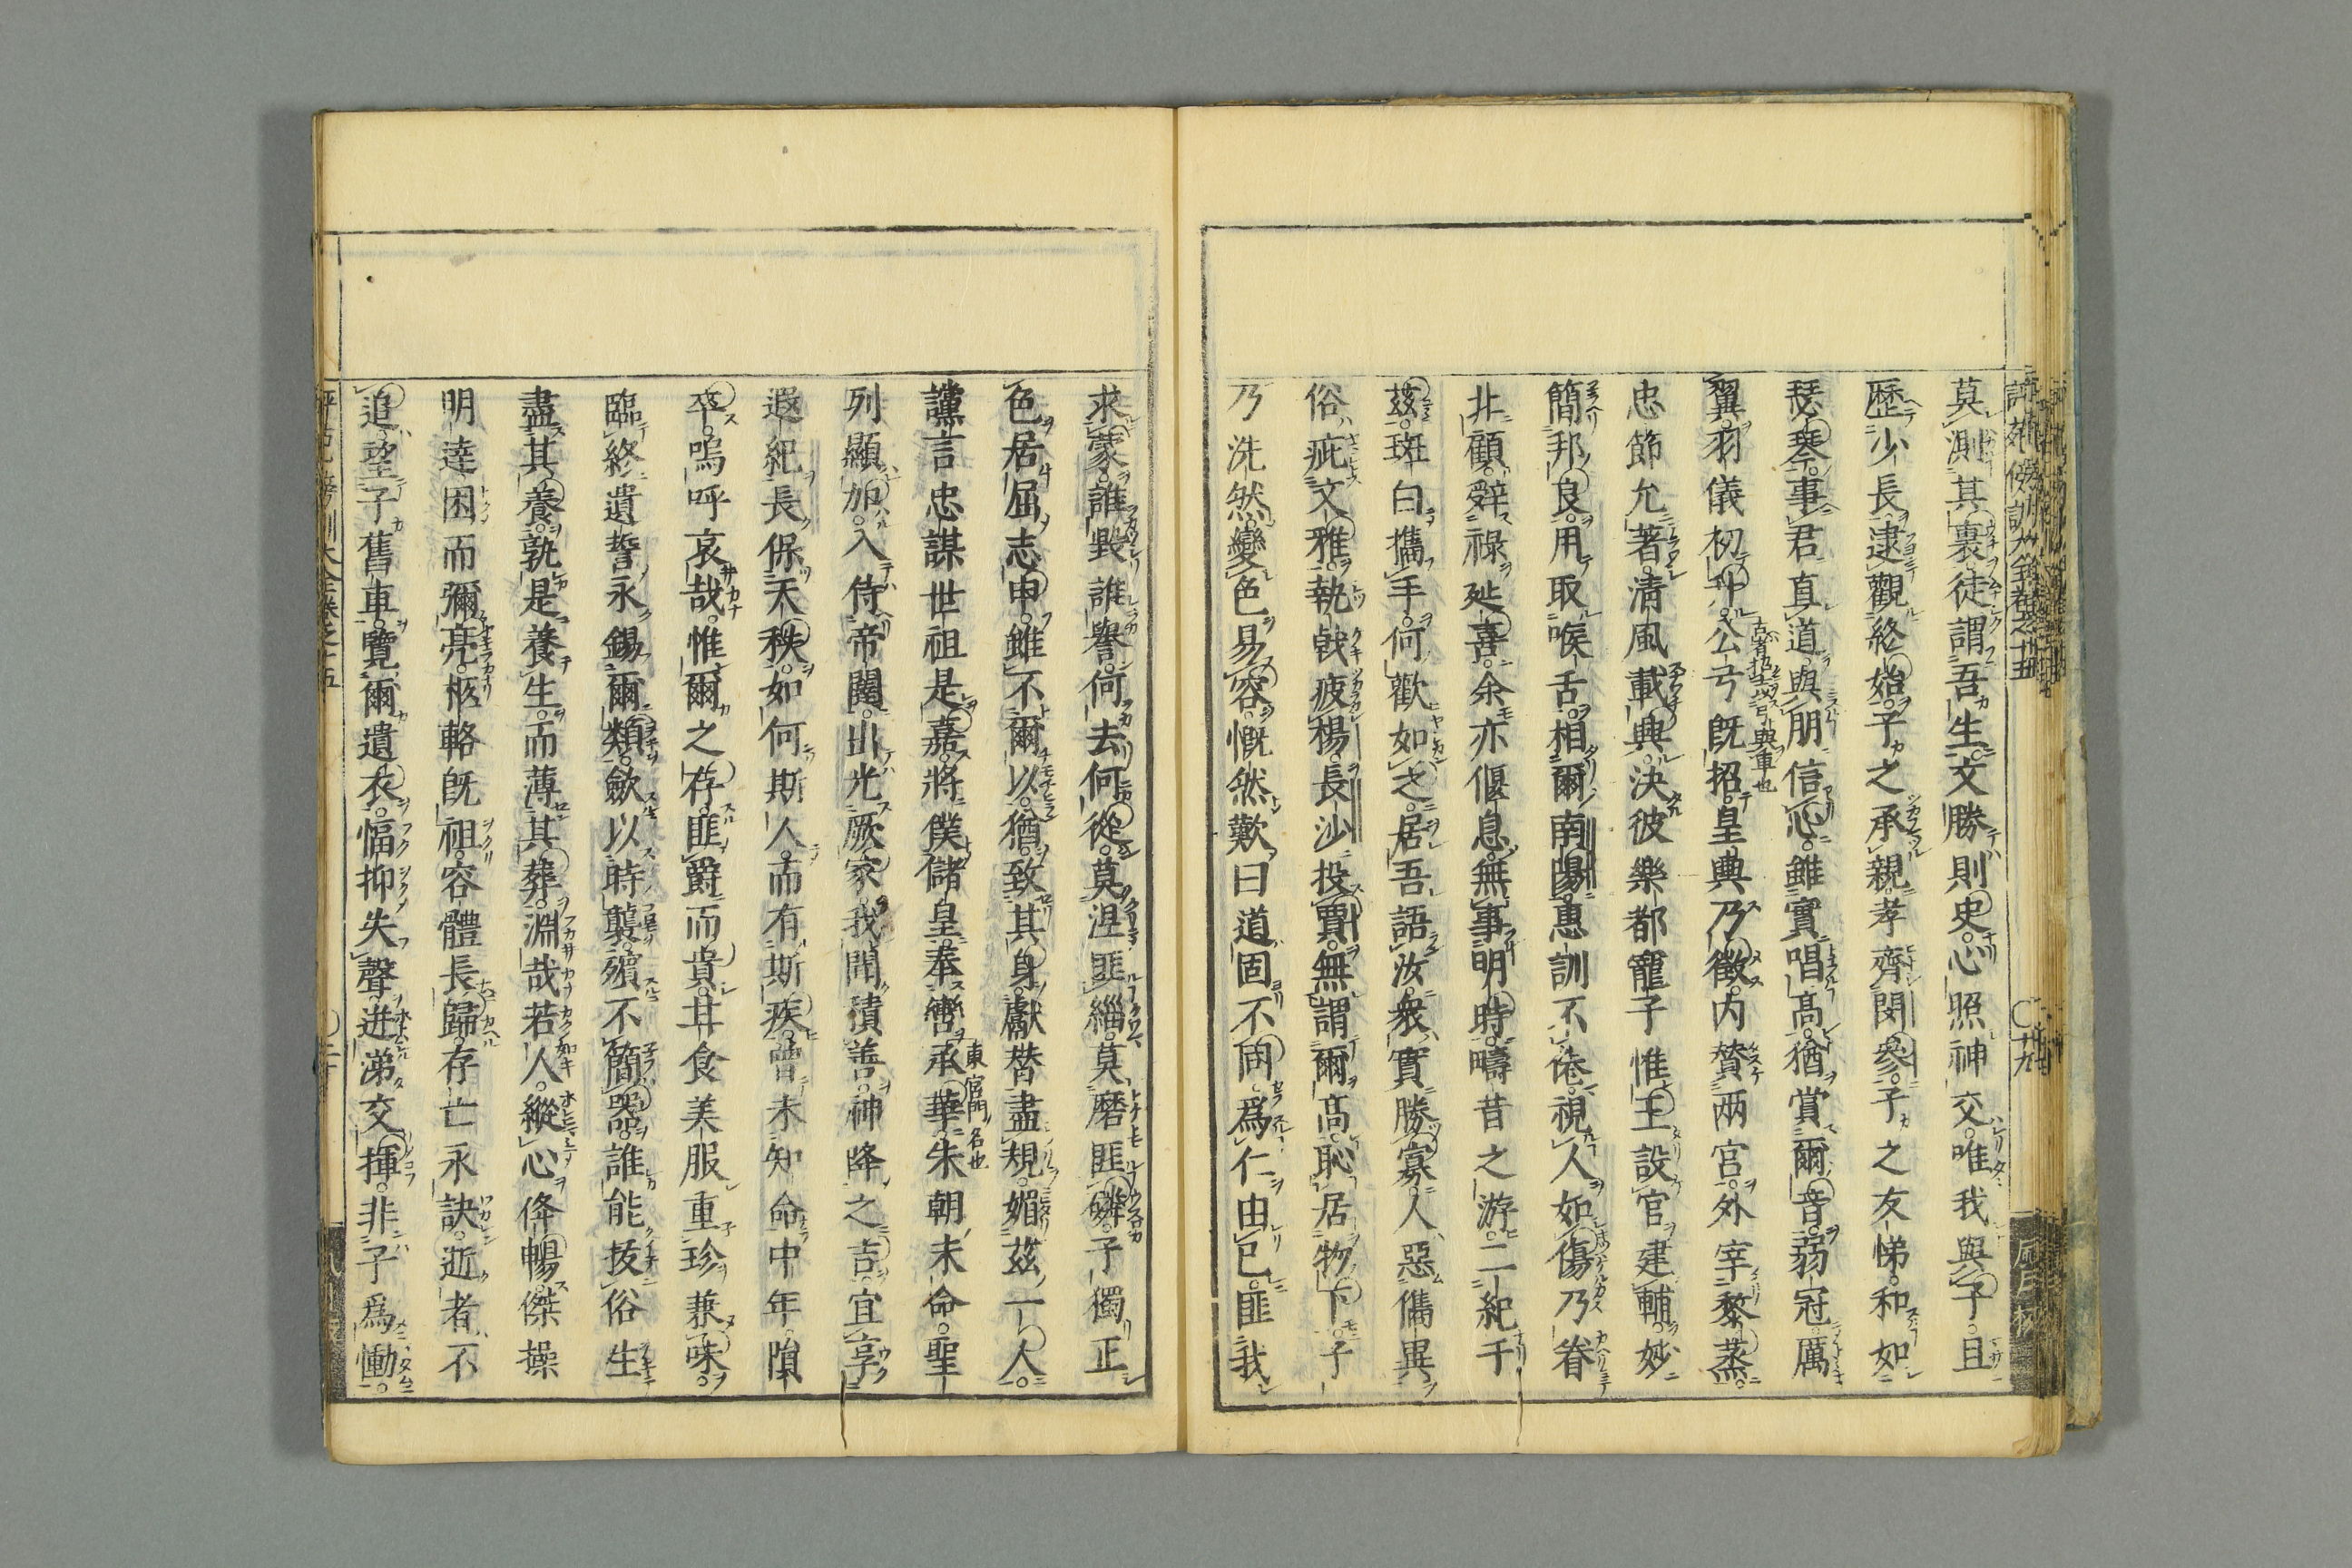 莫測其裏徒謂吾生文勝則史心照神交唯我與子且
歷少長逮觀終始子之承親孝齊閔參子之友悌和如
瑟琴事君直道與朋信心雖實唱高猶賞爾音弱冠厲
翼羽儀初升公弓既招皇輿乃徵内賛兩宮外宰黎蒸
古者招士以弓輿車也
忠節允著清風載興決彼樂都寵子惟王設官建輔妙
簡邦良用取喉舌相爾南陽惠訓不倦視人如傷乃眷
北顧辭祿延喜余亦偃息無事明時疇昔之游二紀于
茲斑白攜手何歡如之居吾語汝衆實勝寡人惡儁異
俗疵文雅執戟疲楊長沙投賈無謂爾高恥居物下子
乃洗然變色易容慨然歎曰道固不同爲仁由已匪我
求蒙誰毀誰譽何去何從莫涅匪緇莫磨匪磷子獨正
色居屈志申雖不爾以猶致其身獻替盡規媚茲一人
讜言忠謀世祖是嘉將僕儲皇奉轡承華朱朝未命聖
東宮門名也
列顯加入侍帝闥出光厥家我聞積善神降之吉宜享
遐紀長保天秩如何斯人而有斯疾曾未知命中年隕
卒嗚呼哀哉惟爾之存匪爵而貴甘食美服重珍兼味
臨終遺誓永錫爾類斂以時襲殯不簡器誰能拔俗生
盡其養孰是養生而薄其葬淵哉若人縱心條暢傑操
明達困而彌亮柩輅既祖容體長歸存亡永訣逝者不
追望子舊車覽爾遺衣愊抑失聲迸涕交揮非子爲慟